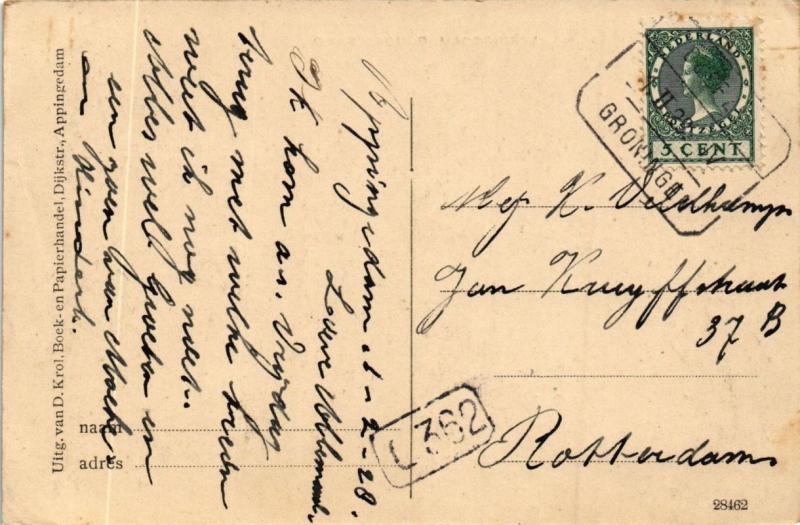 Uitg. van D. Krol, Boek- en Papierhandel, Dijkstr., Appingedam
Appingedam. 1-2-28.
Lieve
Ik kom a.s. Vrijdag
terug met welke trein
weet ik nog niet.
Alles wel Groeten en
een zoen van Moeke
en Rindert.
naam
adres
NEDERLAND
POSTZEGEL
5 CENT
GRONINGEN
L 362
Mej K. Veldkamp
Jan Kruyffstraat
37 B
Rotterdam
28462